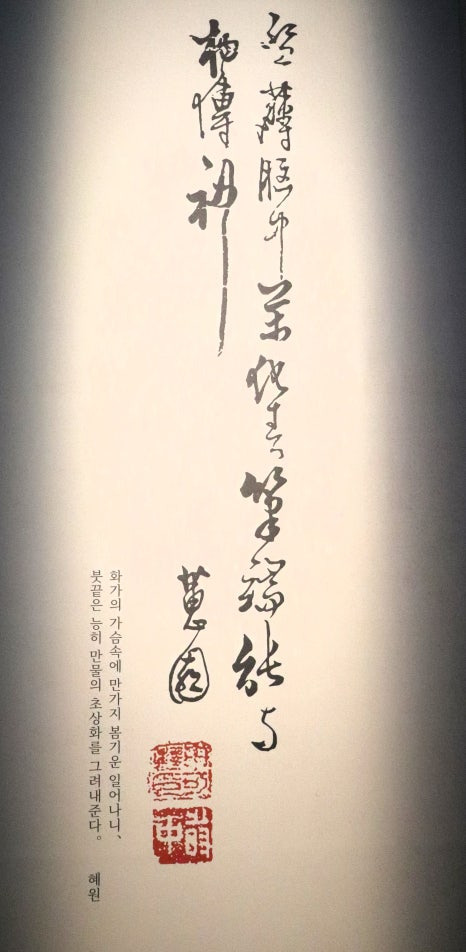 盤薄胸中萬化春筆端能與
物傳神
蕙園
화가의 가슴속에 만가지 봄기운 일어나니、
붓끝은 능히 만물의 초상화를 그려내준다。 혜원